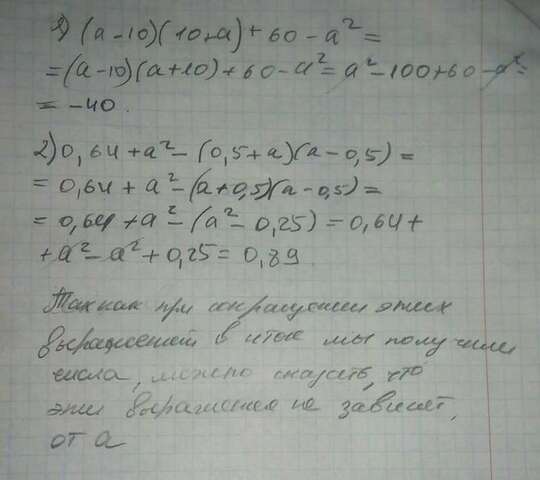 1) (a-10)(10+a)+60-a²=
=(a-10)(a+10)+60-a²=a²-100+60-a²=
=-40.
2) 0,64+a²-(0,5+a)(a-0,5)=
=0,64+a²-(a+0,5)(a-0,5)=
=0,64+a²-(a²-0,25)=0,64+
+a²-a²+0,25=0,89.
Так как при сокращении этих
выражений в итоге мы получили
числа, можно сказать, что
эти выражения не зависят
от a